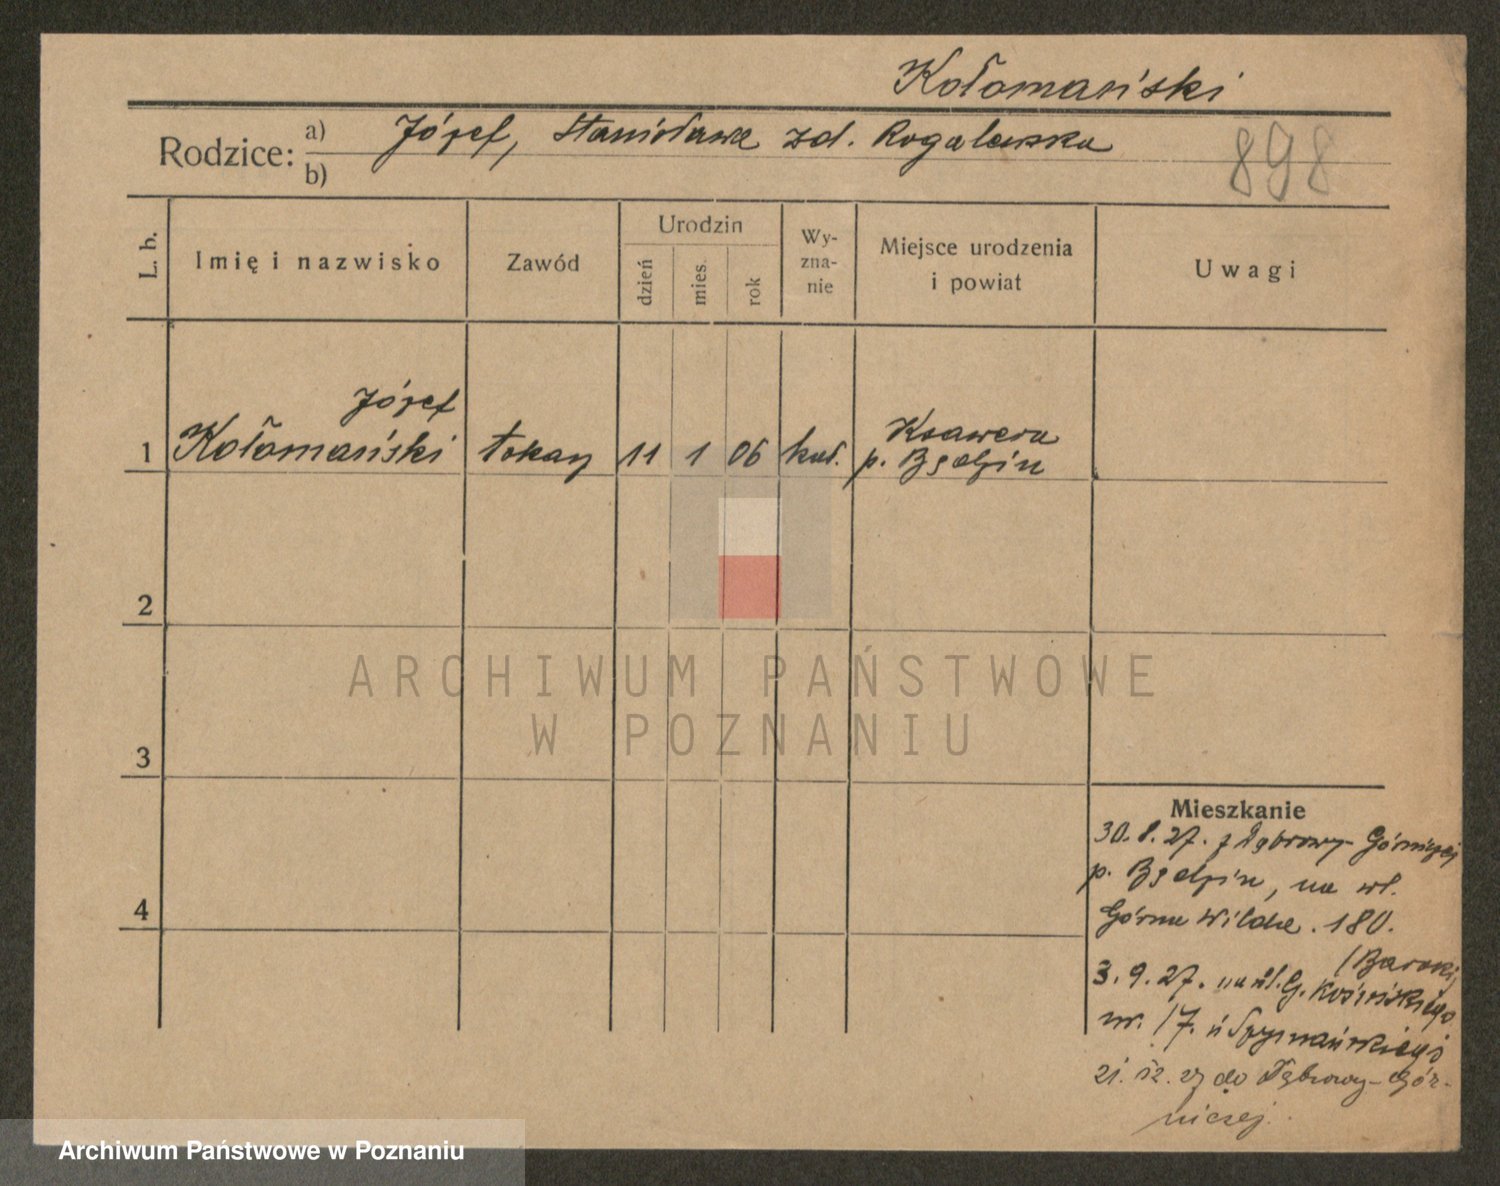 Kołomański
Rodzice: a) Józef, Stanisława zd. Rogalewska
b)
898
L. b.
Imię i nazwisko
Zawód
Urodzin
dzień
mies.
rok
Wy-
zna-
nie
Miejsce urodzenia
i powiat
Uwagi
1
Józef
Kołomański
tokarz
11
1
06
kat.
Ksawera
p. Będzin
2
3
4
ARCHIWUM PAŃSTWOWE
W POZNANIU
Mieszkanie
30.8.27. z Dąbrowy-Górniczej
p. Będzin, na ul.
Górna Wilda. 180.
/Baraki/
3.9.27. na ul. G. Kosińskiego
nr. 17. u
21. 12. 27 do Dąbrowy-Gór-
niczej.
Archiwum Państwowe w Poznaniu